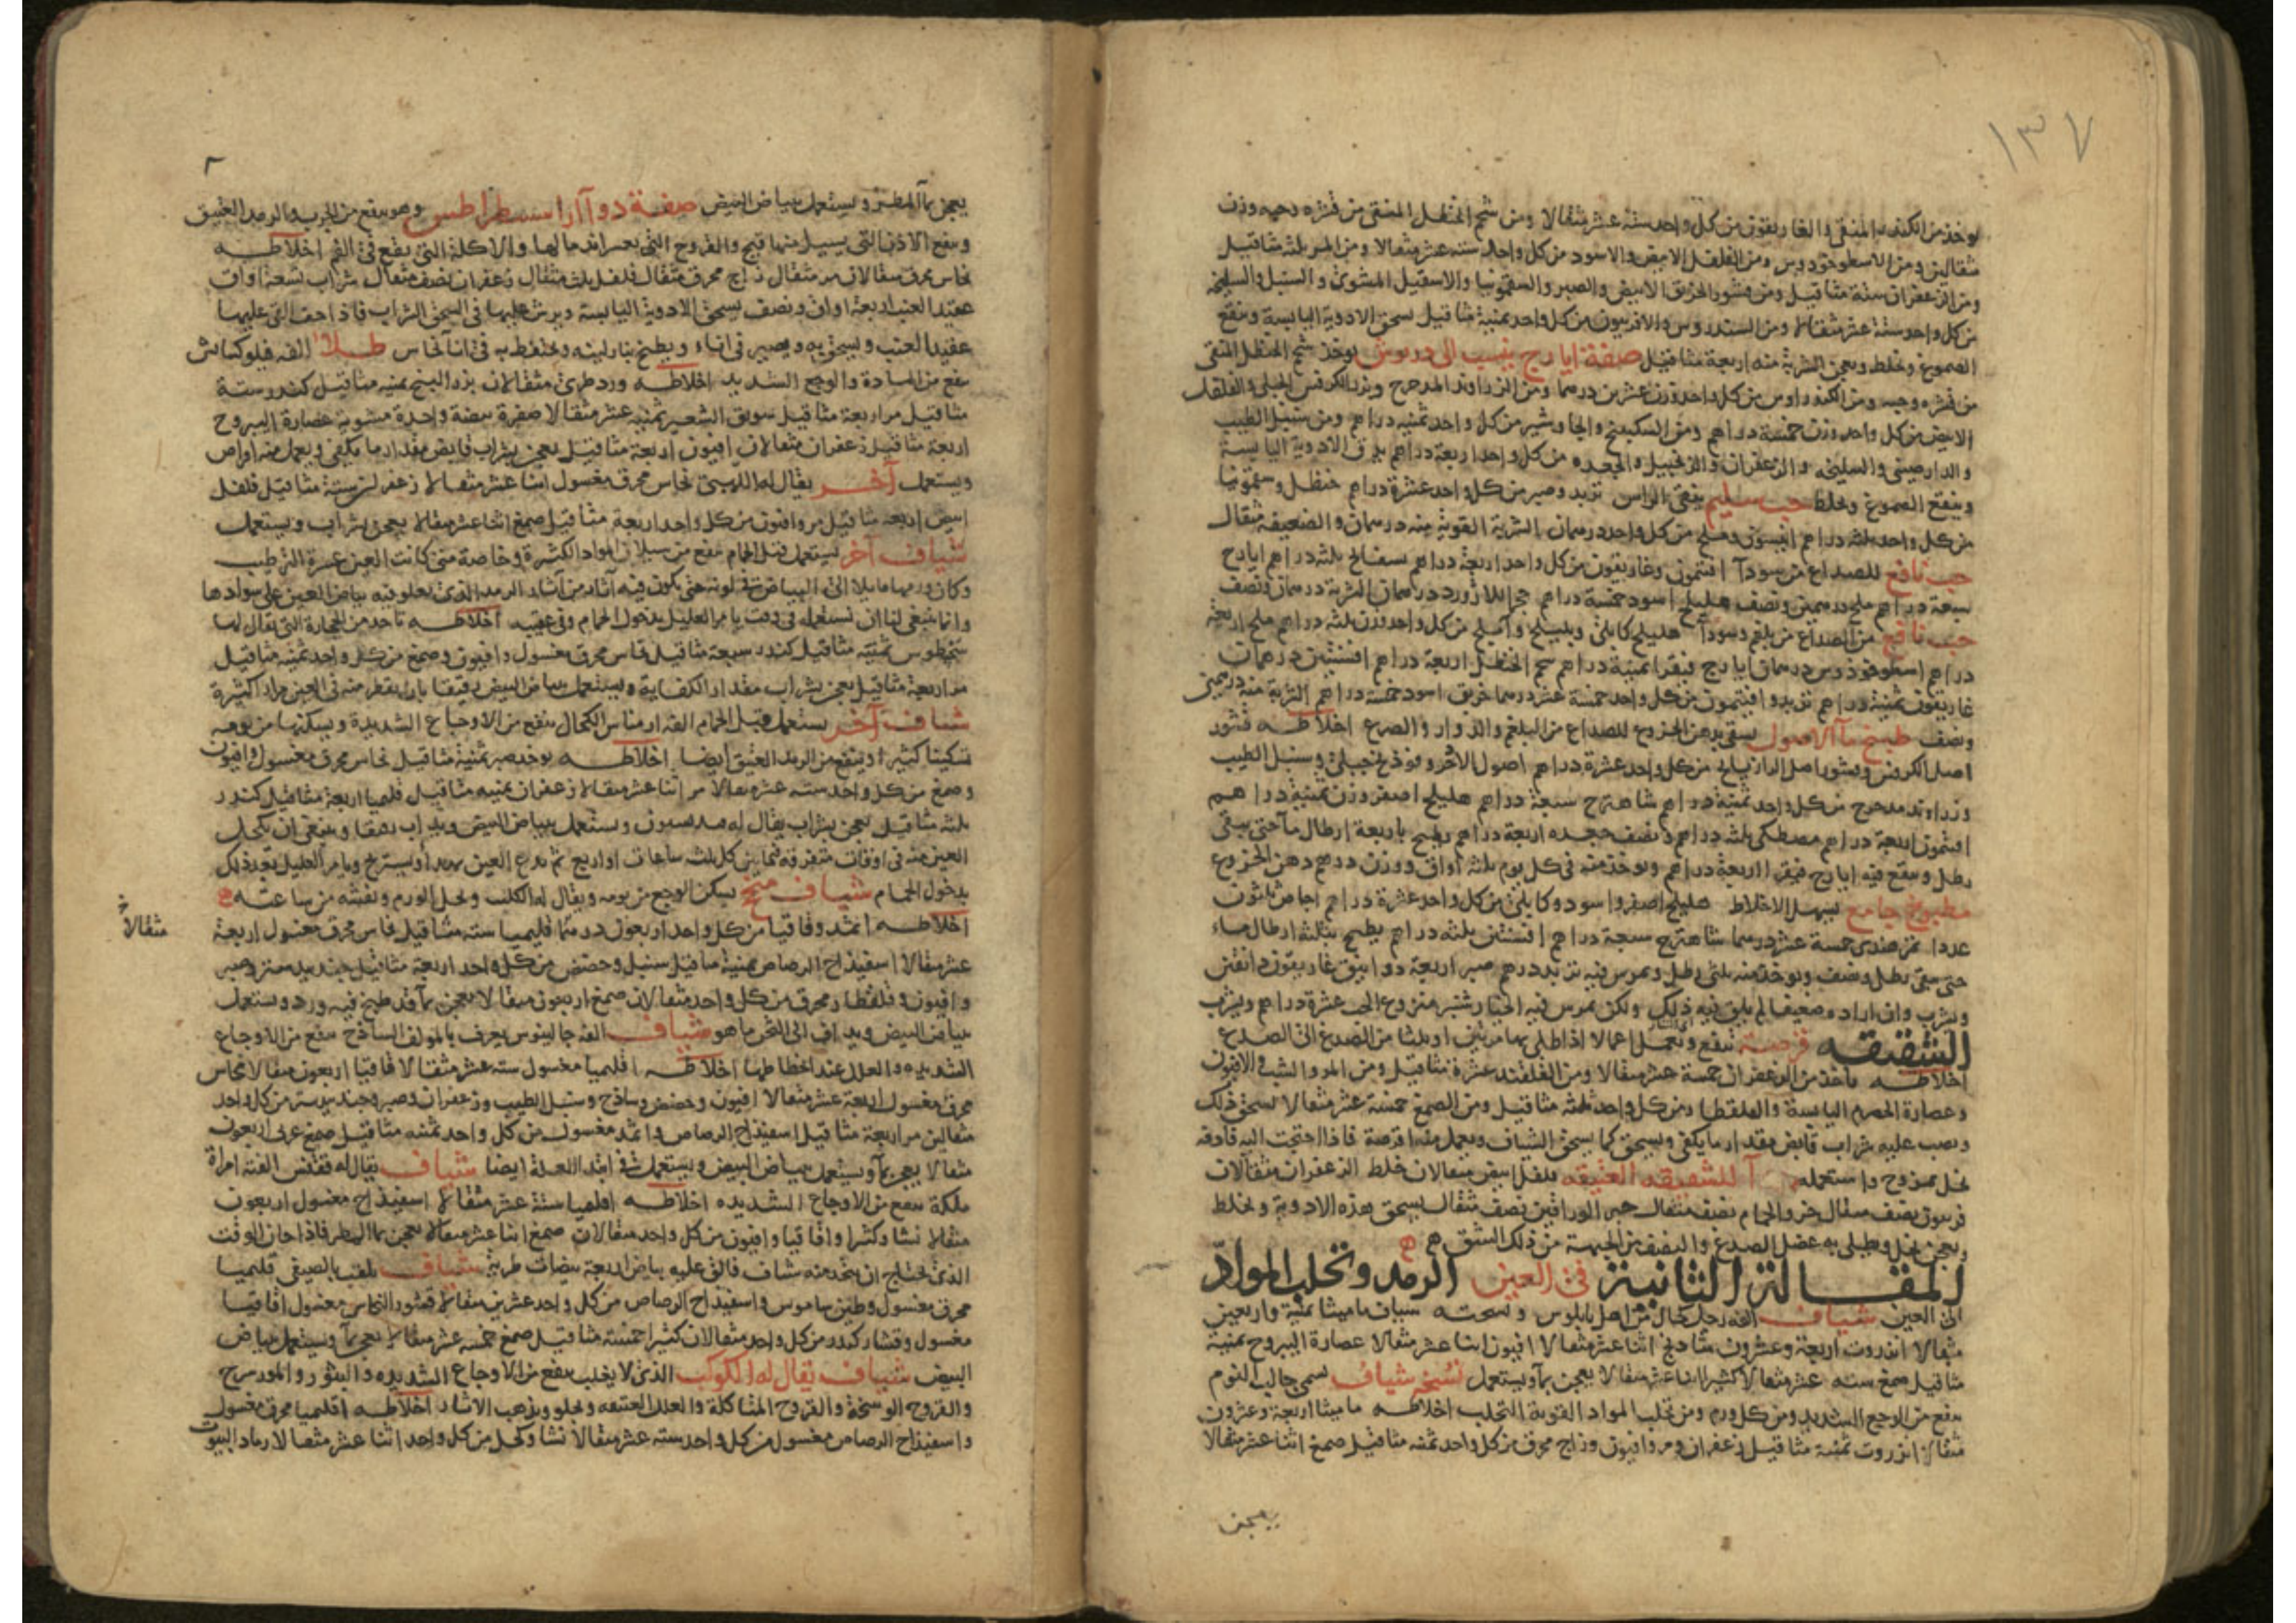 ١٣٧
يوخذ من الكندس المنقى والغاريقون من كل واحد ستة عشر مثقالا ومن شحم الحنظل المنقى من قشره وحبه وزن
مثقالين ومن الاسطوخودوس ومن الفلفل الابيض والاسود من كل واحد سته عشر مثقالا ومن المر ثلثه مثاقيل
ومن الزعفران ستة مثاقيل ومن قشور الخربق الابيض والصبر والسقمونيا والاسقيل المشوي والسنبل والسليخه
من كل واحد ستة عشر مثقالا ومن السندروس والافربيون من كل واحد ثمنية مثاقيل يسحق الادوية اليابسة وينقع
الصموغ ويخلط ويعجن الشربة منه اربعة مثاقيل صفة ايارج ينسب الى دريوش يوخذ شحم الحنظل المنقى
من قشره وحبه ومن الكندراوس من كل واحد وزن عشرين درهما ومن الزراوند المدحرج وبزر الكرفس الجبلي والفلفل
الابيض من كل واحد وزن خمسة دراهم ومن السكبينج والجاوشير من كل واحد ثمنيه دراهم ومن سنبل الطيب
والدارصيني والسليخه والزعفران والزنجبيل والجعده من كل واحد اربعة دراهم يدق الادوية اليابسة
وينقع الصموغ ويخلط حب سليم ينقي الراس تربد وصبر من كل واحد عشرة دراهم حنظل وسقمونيا
من كل واحد ثلثه دراهم انيسون وملح من كل واحد درهمان الشربة القوية منه درهمان والضعيفة مثقال
حب نافع للصداع من سودآ افتيمون وغاريقون من كل واحد اربعة دراهم بسفايج ثلثه دراهم ايارج
سبعة دراهم ملح درهمين ونصف هليلج اسود خمسة دراهم حجر اللازورد درهمان الشربة درهمان ونصف
حب نافع من الصداع من بلغم وسودآ هليلج كابلي وبليلج واملج من كل واحد وزن ثلثه دراهم ملح اربعة
دراهم اسطوخوذوس درهمان ايارج فيقرا ثمنية دراهم شحم الحنظل اربعة دراهم افسنتين درهمان
غاريقون ثمنية دراهم تربد وافتيمون من كل واحد خمسة عشر درهما خربق اسود خمسة دراهم الشربة منه درهمين
ونصف طبيخ مآ الاصول يسقى بدهن الخروع للصداع من البلغم والدوار والصرع اخلاطه قشور
اصل الكرفس وقشور اصل الرازيانج من كل واحد عشرة دراهم اصول الاذخر وفوذنج جبلي وسنبل الطيب
وزراوند مدحرج من كل واحد ثمنية دراهم شاهترج سبعة دراهم هليلج اصفر وزن ثمنية دراهم
افتيمون اربعة دراهم مصطكي ثلثه دراهم ونصف جعده اربعة دراهم يطبخ باربعة ارطال مآ حتى يبقى
رطل وينقع فيه ايارج فيقرا اربعة دراهم ويوخذ منه في كل يوم ثلثه اواق ووزن درهم دهن الخروع
مطبوخ جامع يسهل الاخلاط هليلج اصفر واسود وكابلي من كل واحد عشرة دراهم اجاص ثلثون
عددا تمر هندي خمسة عشر درهما شاهترج سبعة دراهم افسنتين ثلثه دراهم يطبخ بثلثه ارطال ماء
حتى يبقى رطل ونصف ويوخذ منه ثلثي رطل ويمرس فيه تربد درهم صبر اربعة دوانيق غاريقون دانقين
ويشرب وان اراد ضعيفا لم يلق فيه ذلك ولكن يمرس فيه الخيار شنبر منزوع الحب عشرة دراهم ويشرب
الشقيقه قرصة تنفع وتعمل اعمالا اذا طلي بها مرتين او ثلثا من الصدغ الى الصدغ
اخلاطه ياخذ من الزعفران خمسة عشر مثقالا ومن القلقند عشرة مثاقيل ومن المر والشب والافيون
وعصارة الحصرم اليابسة والقلقطار من كل واحد ثلثة مثاقيل ومن الصمغ خمسة عشر مثقالا يسحق ذلك
ويصب عليه شراب قابض مقدار ما يكفي ويسحق كما يسحق الشياف ويعمل منه اقرصة فاذا احتجت اليه فادفه
بخل ممزوج واستعمله للشقيقه العتيقه فلفل ابيض مثقالان خلط الزعفران مثقالان
فربيون نصف مثقال خرو الحمام نصف مثقال حبر الوراقين نصف مثقال يسحق هذه الادوية ويخلط
ويعجن بخل ويطلى به عضل الصدغ والنصف من الجبهة من ذلك الشق
المقالة الثانية في العين الرمد وتحلب المواد
الى العين شياف الفه رجل كحال من اهل بابلوس ونسخته شياف ماميثا ثمنية واربعين
مثقالا انزروت اربعة وعشرون شاذنج اثنا عشر مثقالا افيون اثنا عشر مثقالا عصارة اليبروح ثمنية
مثاقيل صمغ سته عشر مثقالا كثيرا اثنا عشر مثقالا يعجن بمآ ويستعمل نسخة شياف يسمى جالب النوم
ينفع من الوجع الشديد ومن كل ورم ومن تحلب المواد القوية التحلب اخلاطه ماميثا اربعة وعشرون
مثقالا انزروت ثمنية مثاقيل زعفران ومر وافيون وزاج محرق من كل واحد ثمنه مثاقيل صمغ اثنا عشر مثقالا
يعجن
يعجن بمآ المطر ويستعمل ببياض البيض صفة دوآ اراسسطراطس وهو ينفع من الجرب والرمد العتيق
وينفع الاذن التي يسيل منها قيح والقروح التي يعسر اندمالها والاكلة التي يقع في الفم اخلاطه
نحاس محرق مثقالان مر مثقال زاج محرق مثقال فلفل ثلث مثقال زعفران نصف مثقال شراب تسعة اواق
عقيد العنب اربعة اواق ونصف يسحق الادوية اليابسة ويرش عليها في السحق الشراب فاذا جف القي عليها
عقيد العنب ويسحق به ويصير في اناء ويطبخ بنار لينه ويحتفظ به في انآ نحاس طلآ الفه فيلوكساش
ينفع من المادة والوجع الشديد اخلاطه ورد طري مثقالان بزر البنج ثمنيه مثاقيل كندر ستة
مثاقيل مر اربعة مثاقيل سويق الشعير ثمنيه عشر مثقالا صفرة بيضة واحدة مشوية عصارة اليبروح
اربعة مثاقيل زعفران مثقالان افيون اربعة مثاقيل يعجن بشراب قابض مقدار ما يكفي ويعمل منه اقراص
ويستعمل آخر يقال له اللهبي نحاس محرق مغسول اثنا عشر مثقالا زعفران ستة مثاقيل فلفل
ابيض اربعة مثاقيل مر وافيون من كل واحد اربعة مثاقيل صمغ اثنا عشر مثقالا يعجن بشراب ويستعمل
شياف آخر يستعمل قبل الحمام ينفع من سيلان المواد الكثيرة وخاصة متى كانت العين عسرة الترطيب
وكان ورمها مايلا الى البياض في لونه حتى يكون فيه آثار من آثار الرمد الذي يعلو فيه بياض العين على سوادها
وانما ينبغي لنا ان نستعمله في وقت يامر العليل بدخول الحمام وفي عقيبه اخلاطه تاخذ من الحجارة التي يقال لها
سخطوس ثمنيه مثاقيل كندر سبعة مثاقيل نحاس محرق مغسول وافيون وصمغ من كل واحد ثمنيه مثاقيل
مر اربعة مثاقيل يعجن بشراب مقدار الكفاية ويستعمل ببياض البيض رقيقا بان يقطر منه في العين مرارا كثيرة
شياف آخر يستعمل قبل الحمام الفه ارمناس الكحال ينفع من الاوجاع الشديدة ويسكنها من يومه
تسكينا كثيرا وينفع من الرمد العتيق ايضا اخلاطه يوخذ صبر ثمنية مثاقيل نحاس محرق مغسول وافيون
وصمغ من كل واحد سته عشر مثقالا مر اثنا عشر مثقالا زعفران ثمنيه مثاقيل قليميا اربعة مثاقيل كندر
ثلثه مثاقيل يعجن بشراب يقال له ويستعمل ببياض البيض ويداف رقيقا وينبغي ان يكحل
العين منه في اوقات متفرقه فيما بين كل ثلث ساعات او اربع ثم العين ويستريح ويامر العليل بعد ذلك
بدخول الحمام شياف منجح يسكن الوجع من يومه ويقال له الكلب ويحل الورم ويفشه من ساعته
اخلاطه اثمد وقاقيا من كل واحد اربعون درهما قليميا سته مثاقيل نحاس محرق مغسول اربعة
مثقالا
عشر مثقالا اسفيذاج الرصاص ثمنية مثاقيل سنبل وحضض من كل واحد اربعة مثاقيل جندبيدستر وصبر
وافيون وقلقطار محرق من كل واحد مثقالان صمغ اربعون مثقالا يعجن بمآ قد طبخ فيه ورد ويستعمل
ببياض البيض ويداف الى الثخن ما هو شياف الفه جالينوس يعرف بالمولف الساذج ينفع من الاوجاع
الشديده والعلل عند انحطاطها اخلاطه اقليميا مغسول سته عشر مثقالا قاقيا اربعون مثقالا نحاس
محرق مغسول اربعة عشر مثقالا افيون وحضض وساذج وسنبل الطيب وزعفران وصبر وجندبيدستر من كل واحد
مثقالين مر اربعة مثاقيل اسفيذاج الرصاص واثمد مغسول من كل واحد ثمنيه مثاقيل صمغ عربي اربعون
مثقالا يعجن بمآ ويستعمل ببياض البيض ويستعمل في ابتدا العلة ايضا شياف يقال له ققنس الفته امراة
ملكة ينفع من الاوجاع الشديده اخلاطه اقلميا ستة عشر مثقالا اسفيذاج مغسول اربعون
مثقالا نشا وكثيرا واقاقيا وافيون من كل واحد مثقالان صمغ اثنا عشر مثقالا يعجن بمآ المطر فاذا حان الوقت
الذي يحتاج ان يتخذ منه شياف فالق عليه بياض اربعة بيضات طرية شياف يلقب بالصيفي قليميا
محرق مغسول وطين ساموس واسفيذاج الرصاص من كل واحد عشرين مثقالا قشور النحاس مغسول اقاقيا
مغسول وقشار كندر من كل واحد مثقالان كثيرا خمسة مثاقيل صمغ خمسة عشر مثقالا يعجن بمآ ويستعمل ببياض
البيض شياف يقال له الكوكب الذي لا يغلب ينفع من الاوجاع الشديده والبثور والمورسرج
والقروح الوسخة والقروح المتاكلة والعلل العتيقه ويجلو ويذهب الاثار اخلاطه اقليميا محرق مغسول
واسفيذاج الرصاص مغسول من كل واحد سته عشر مثقالا نشا وكحل من كل واحد اثنا عشر مثقالا رماد البيوت